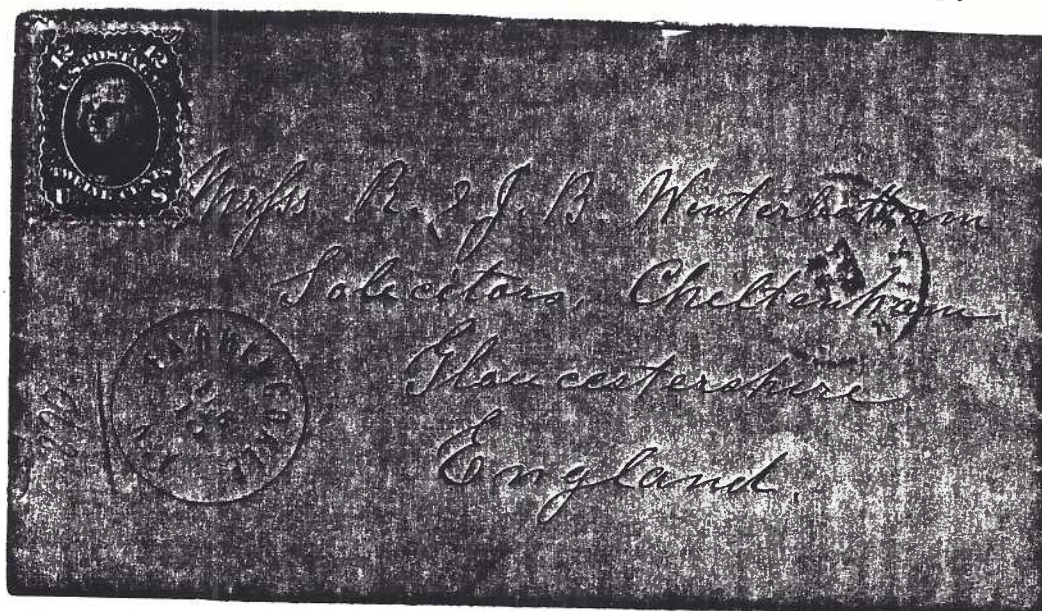 12 12
U.S. POSTAGE
TWELVE CENTS
U S
Messrs. R. & J. B. Winterbotham
Solicitors, Cheltenham
Gloucestershire
England.